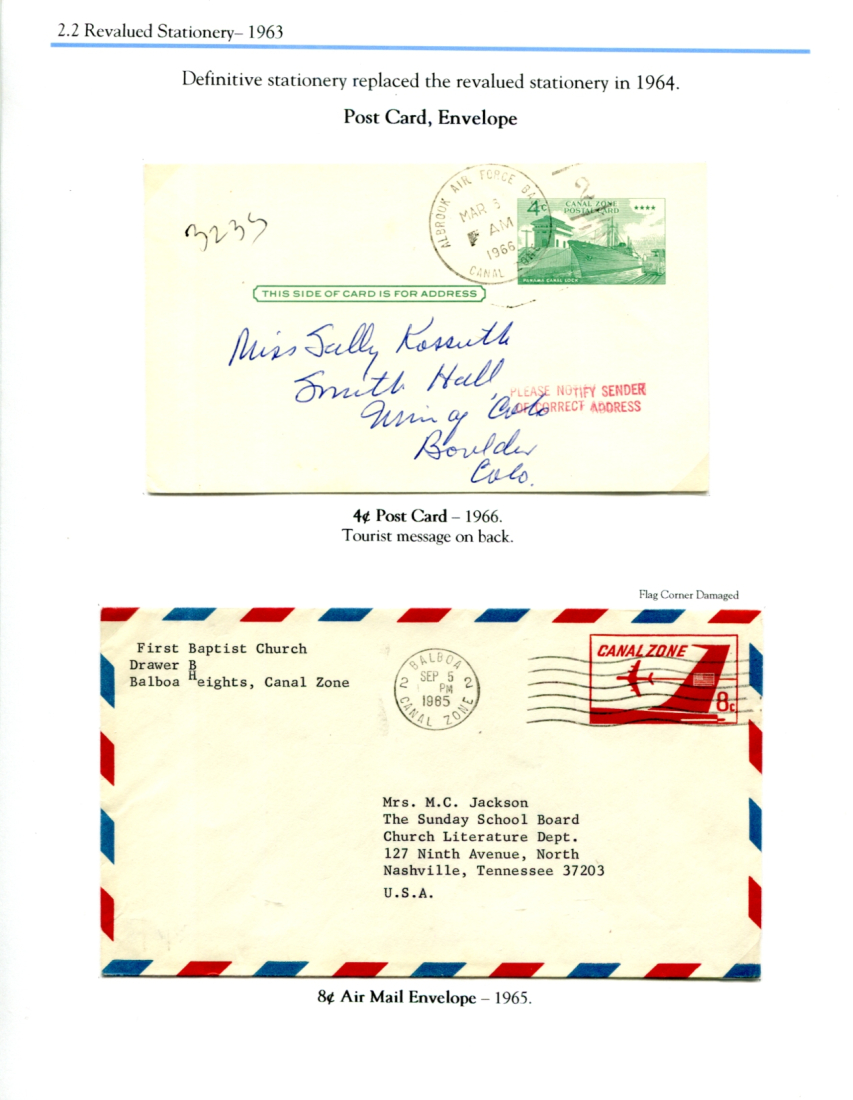 2.2 Revalued Stationery– 1963
Definitive stationery replaced the revalued stationery in 1964.
Post Card, Envelope
3235
ALBROOK AIR FORCE BA
MAR 3
AM
1966
CANAL ZONE
4c CANAL ZONE
POSTAL CARD
PANAMA CANAL LOCK
THIS SIDE OF CARD IS FOR ADDRESS
Miss Sally Kossuth
Smith Hall
PLEASE NOTIFY SENDER
OF CORRECT ADDRESS
of Colo
Boulder
Colo.
4¢ Post Card – 1966.
Tourist message on back.
Flag Corner Damaged
First Baptist Church
Drawer B
Balboa Heights, Canal Zone
BALBOA
SEP 5
2 PM 2
1965
CANAL ZONE
CANAL ZONE
8c
Mrs. M.C. Jackson
The Sunday School Board
Church Literature Dept.
127 Ninth Avenue, North
Nashville, Tennessee 37203
U.S.A.
8¢ Air Mail Envelope – 1965.